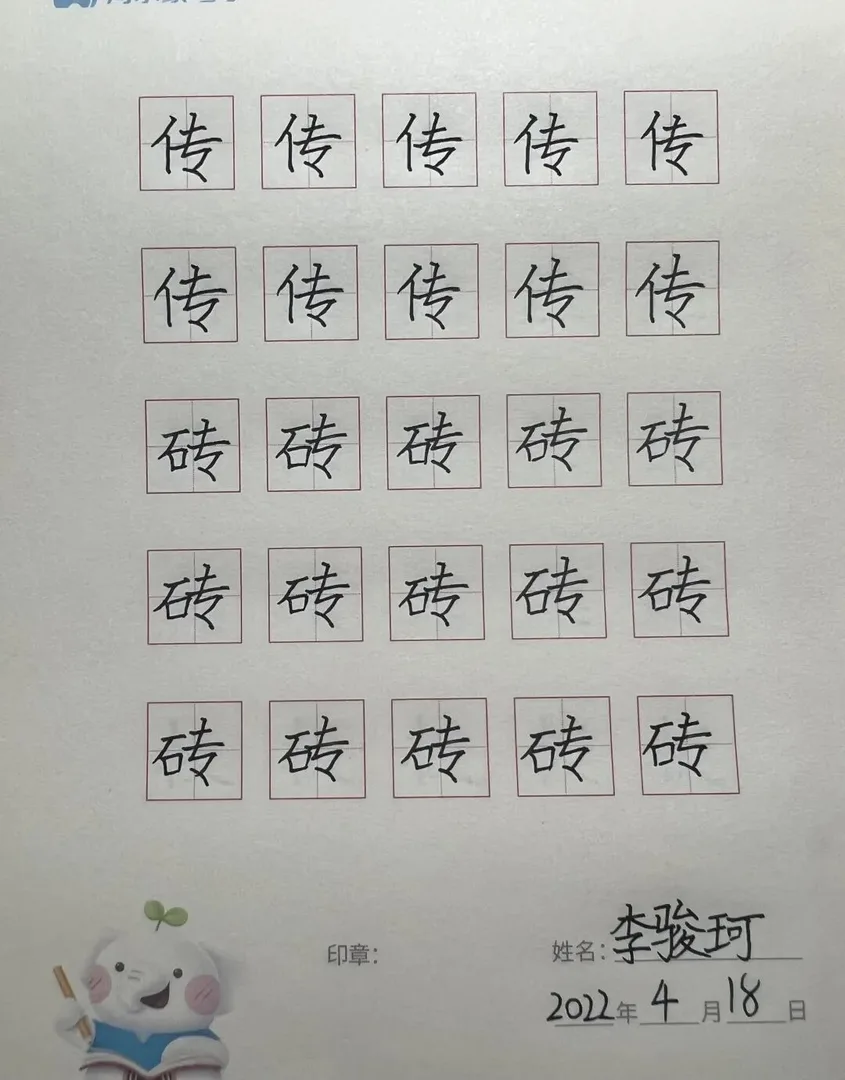 传传传传传
传传传传传
砖砖砖砖砖
砖砖砖砖砖
砖砖砖砖砖
印章: 姓名:李骏珂
2022年4月18日